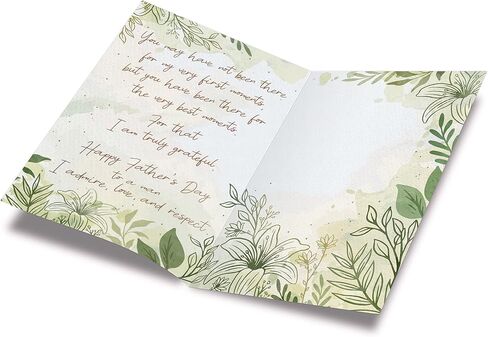 You may have not been there
for my very first moments,
but you have been there for
the very best moments.
For that
I am truly grateful
Happy Father's Day
to a man
I admire, love, and respect.